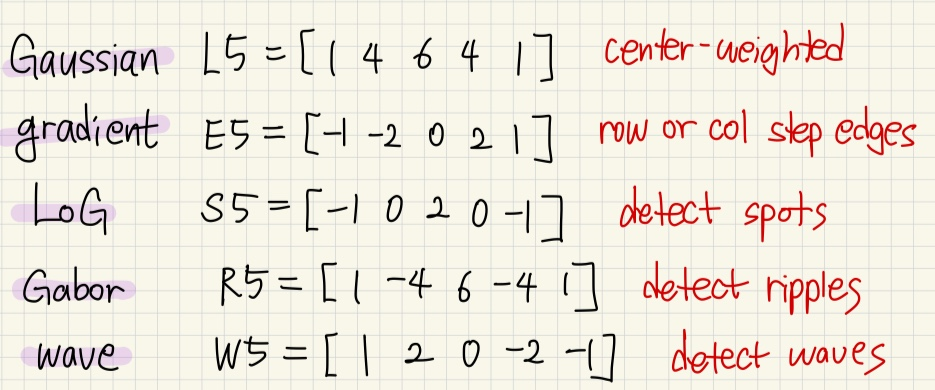 Gaussian L5 = [ 1 4 6 4 1 ] center-weighted
gradient E5 = [ -1 -2 0 2 1 ] row or col step edges
LoG S5 = [ -1 0 2 0 -1 ] detect spots
Gabor R5 = [ 1 -4 6 -4 1 ] detect ripples
wave W5 = [ 1 2 0 -2 -1 ] detect waves